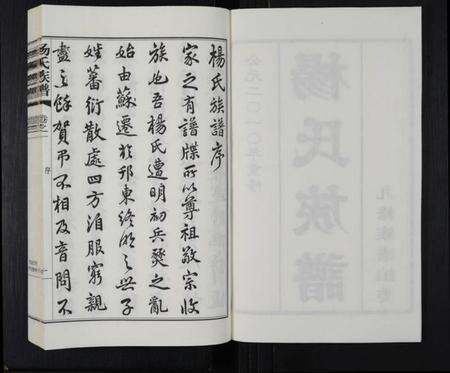 楊氏族譜序
家之有譜牒所以尊祖敬宗收
族也吾楊氏遭明初兵燹之亂
始由蘇遷於邗東 子
姓蕃衍散處四方洎服窮親
盡之餘賀弔不相及音問不
氏族譜
序
公元二〇一〇年
楊氏族譜